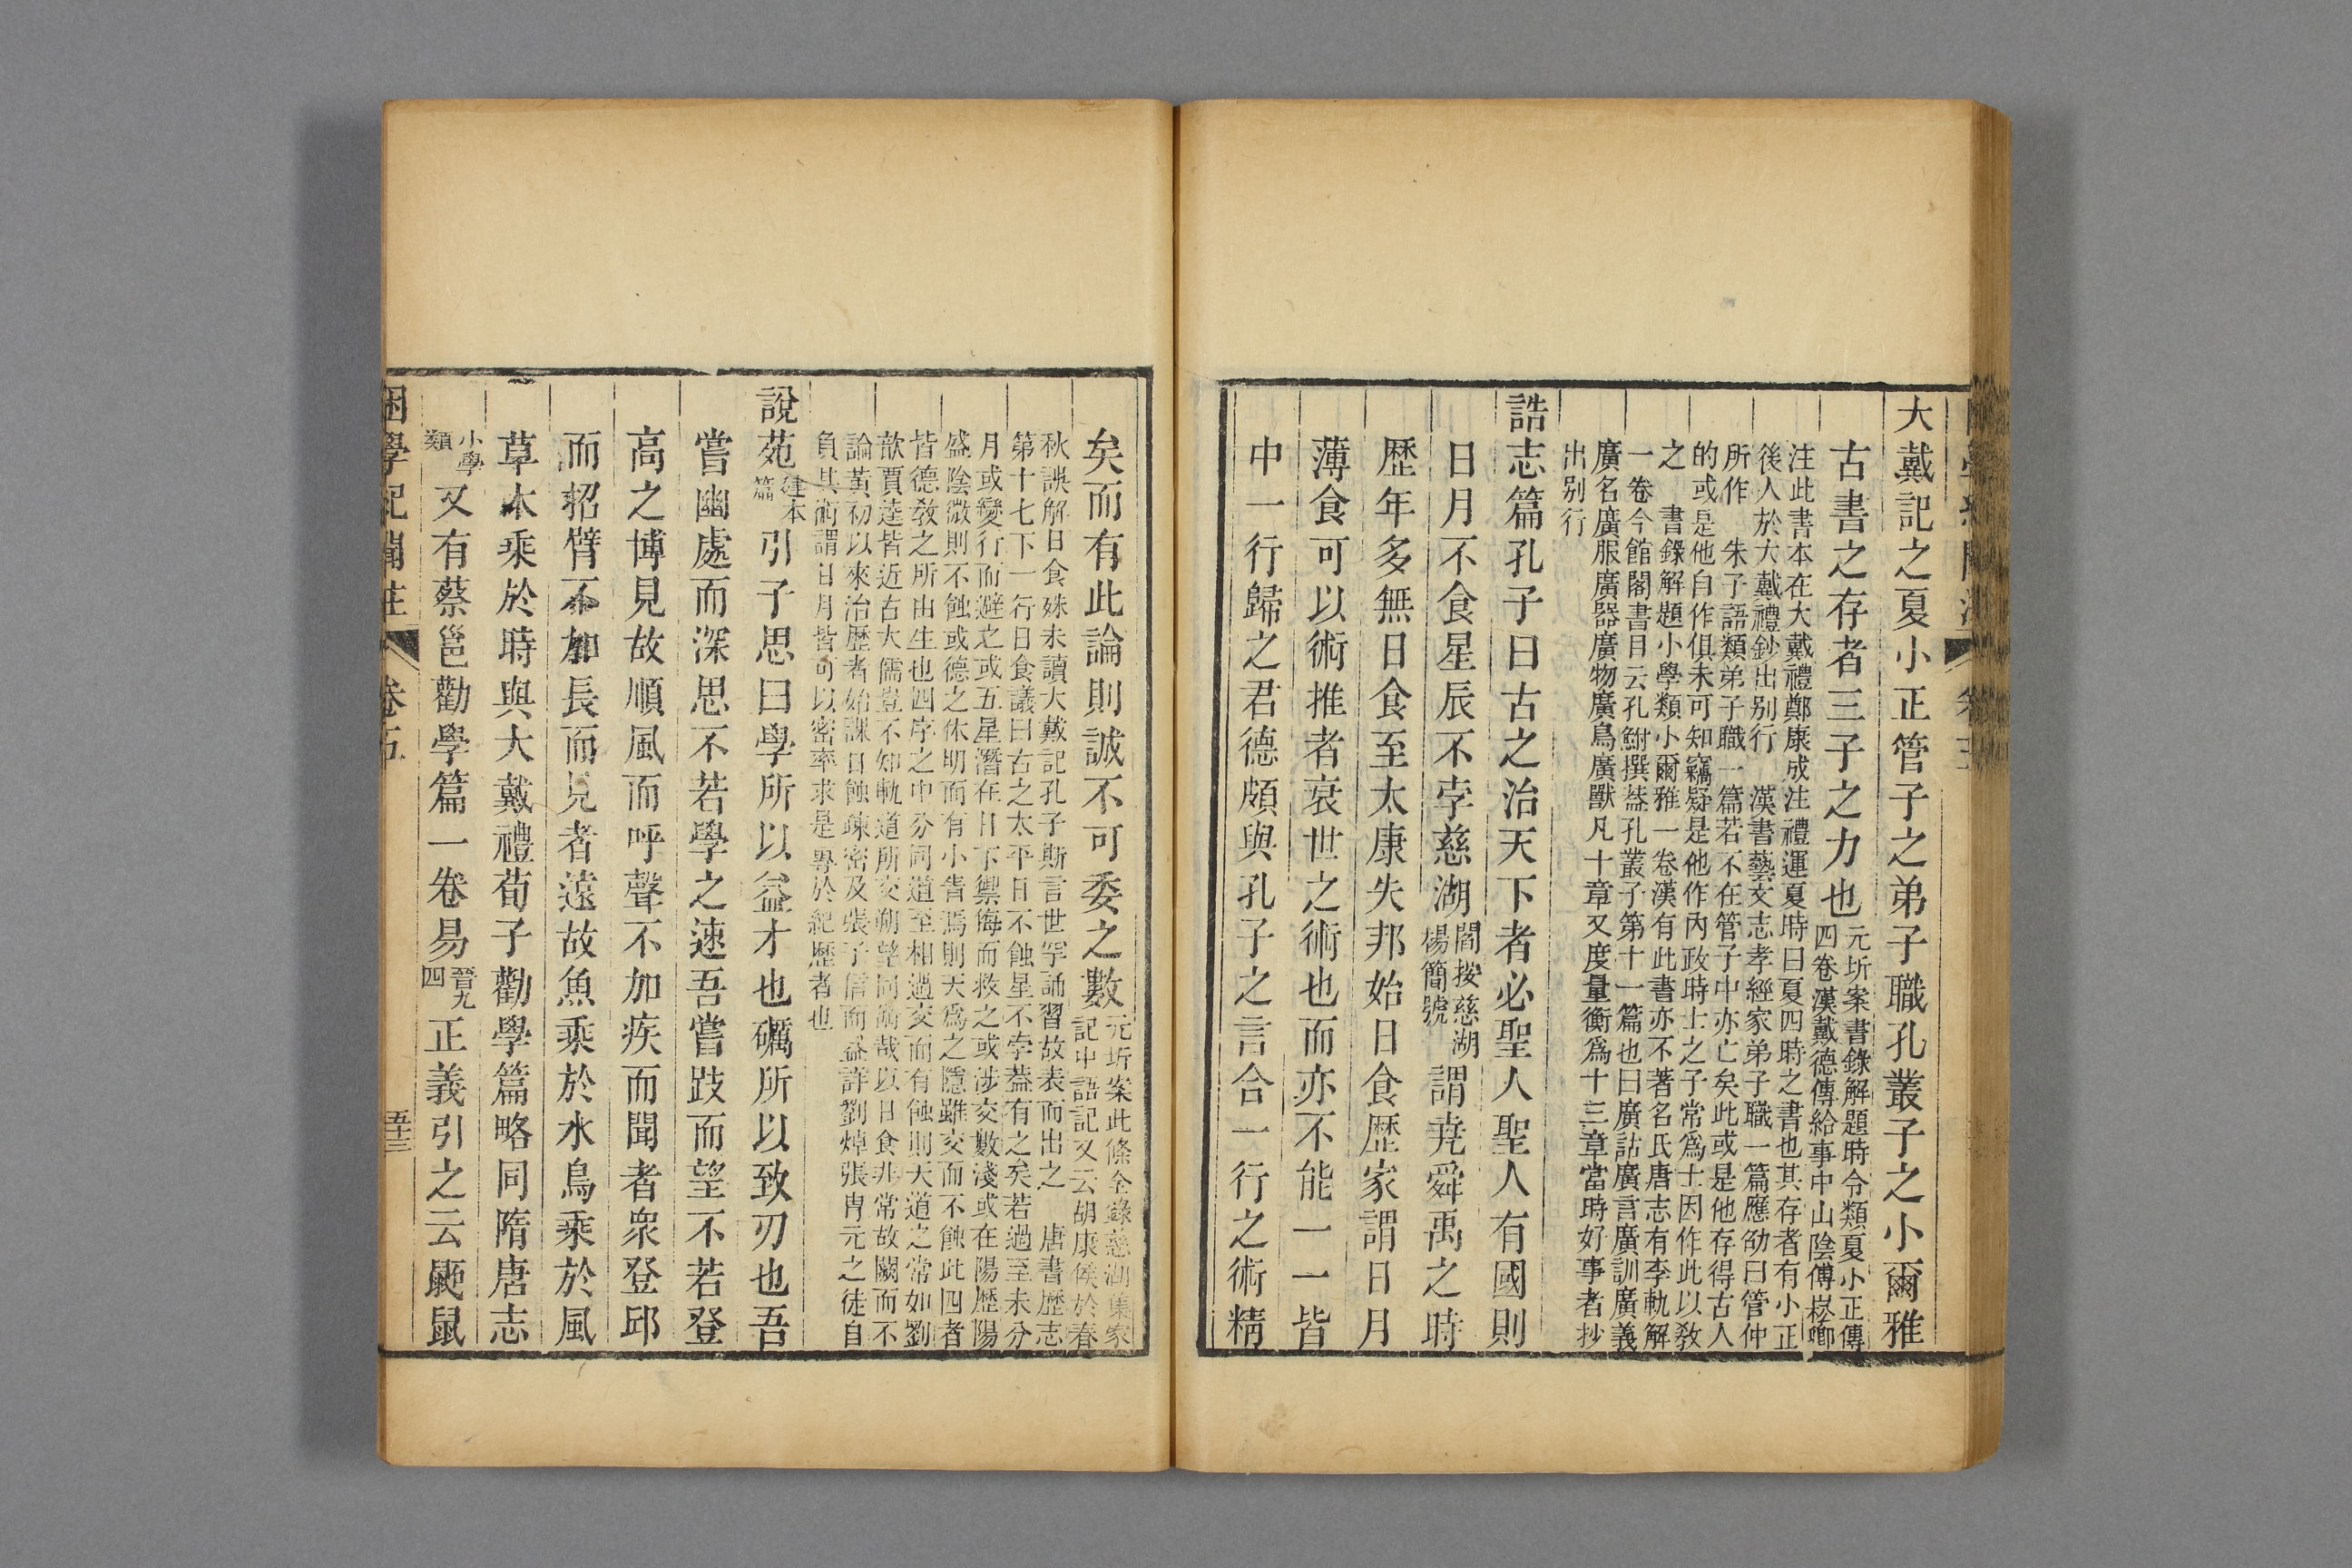 大戴記之夏小正管子之弟子職孔叢子之小爾雅
古書之存者三子之力也
元圻案書錄解題時令類夏小正傳
四卷漢戴德傳給事中山陰傅崧卿
注此書本在大戴禮鄭康成注禮運夏時曰夏四時之書也其存者有小正
後人於大戴禮鈔出別行 漢書藝文志孝經家弟子職一篇應劭曰管仲
所作 朱子語類弟子職一篇若不在管子中亦亡矣此或是他存得古人
的或是他自作俱未可知竊疑是他作內政時士之子常為士因作此以敎
之 書錄解題小學類小爾雅一卷漢有此書亦不著名氏唐志有李軌解
一卷今館閣書目云孔鮒撰葢孔叢子第十一篇也曰廣詁廣言廣訓廣義
廣名廣服廣器廣物廣鳥廣獸凡十章又度量衡為十三章當時好事者抄
出别行
誥志篇孔子曰古之治天下者必聖人聖人有國則
日月不食星辰不孛慈湖
閻按慈湖
楊簡號
謂堯舜禹之時
歷年多無日食至太康失邦始日食歷家謂日月
薄食可以術推者衰世之術也而亦不能一一皆
中一行歸之君德頗與孔子之言合一行之術精
矣而有此論則誠不可委之數
元圻案此條全錄慈湖集家
記中語記又云胡康侯於春
秋誤解日食殊未讀大戴記孔子斯言世罕誦習故表而出之 唐書歷志
第十七下一行日食議曰古之太平日不蝕星不孛葢有之矣若過至未分
月或變行而避之或五星潛在日下禦侮而救之或涉交數淺或在陽歷陽
盛陰微則不蝕或德之休明而有小眚焉則天為之隱雖交而不蝕此四者
皆德敎之所由生也四序之中分同道至相過交而有蝕則天道之常如劉
歆賈逵皆近古大儒豈不知軌道所交朔望同術哉以日食非常故闕而不
論黃初以來治歷者始課日蝕疎密及張子信而益詳劉焯張胄元之徒自
負其術謂日月皆可以密率求是專於紀歷者也
說苑
建本
篇
引子思曰學所以益才也礪所以致刃也吾
嘗幽處而深思不若學之速吾嘗跂而望不若登
高之博見故順風而呼聲不加疾而聞者衆登邱
而招臂不加長而見者遠故魚乘於水鳥乘於風
草木乘於時與大戴禮荀子勸學篇略同隋唐志
小學
類
又有蔡邕勸學篇一卷易
晉九
四
正義引之云鼫鼠
困學紀聞注 卷五 五十三